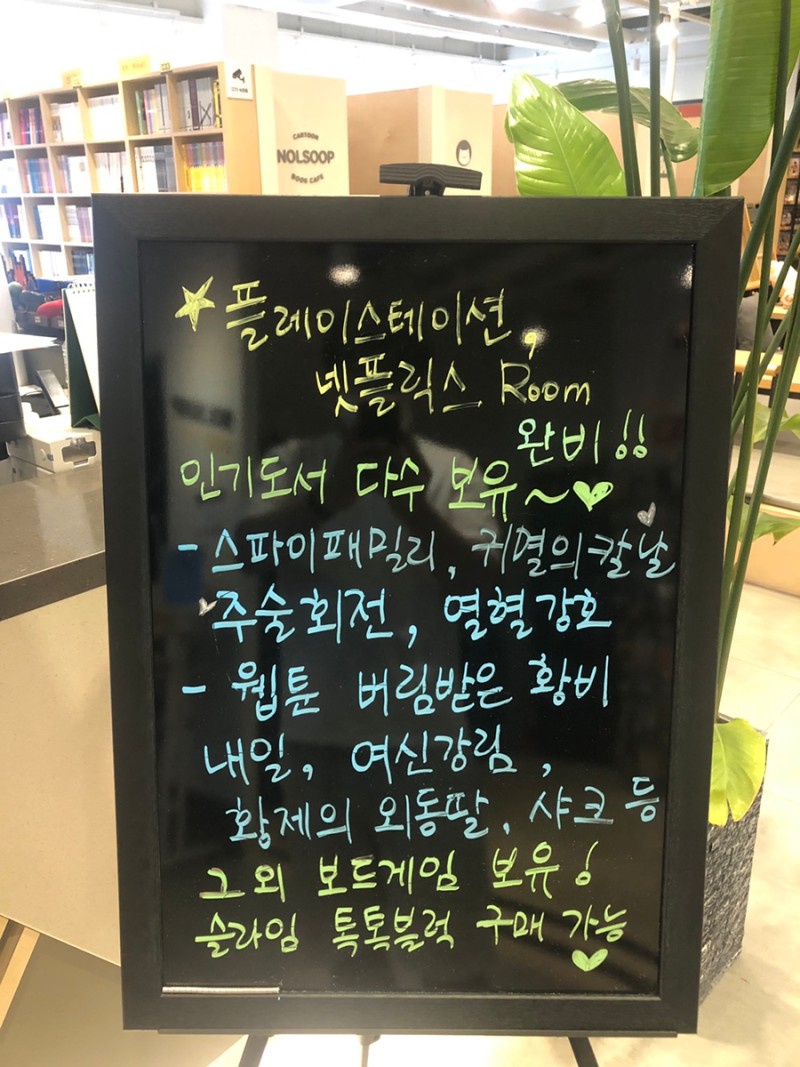 CARTOON
NOLSOOP
BOOK CAFE
★플레이스테이션,
넷플릭스 Room
완비!!
인기도서 다수 보유~♥
- 스파이패밀리, 귀멸의칼날
주술회전, 열혈강호
- 웹툰 버림받은 황비
내일, 여신강림,
황제의 외동딸, 샤크 등
그외 보드게임 보유!
슬라임 톡톡블럭 구매 가능
♥